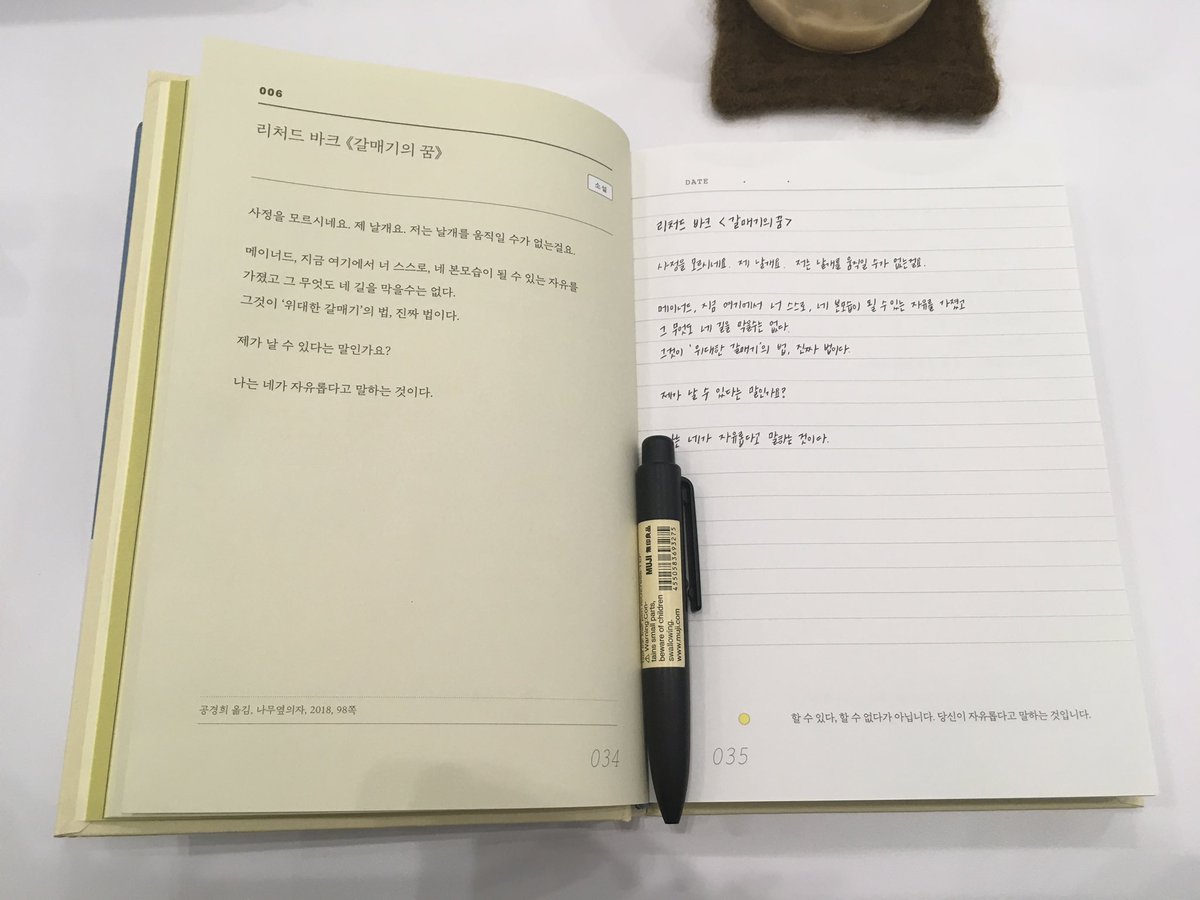 006
리처드 바크 《갈매기의 꿈》
소설
사정을 모르시네요. 제 날개요. 저는 날개를 움직일 수가 없는걸요.
메이너드, 지금 여기에서 너 스스로, 네 본모습이 될 수 있는 자유를
가졌고 그 무엇도 네 길을 막을수는 없다.
그것이 '위대한 갈매기'의 법, 진짜 법이다.
제가 날 수 있다는 말인가요?
나는 네가 자유롭다고 말하는 것이다.
공경희 옮김, 나무옆의자, 2018, 98쪽
034
DATE . .
리처드 바크 <갈매기의 꿈>
사정을 모르시네요. 제 날개요. 저는 날개를 움직일 수가 없는걸요.
메이너드, 지금 여기에서 너 스스로, 네 본모습이 될 수 있는 자유를 가졌고
그 무엇도 네 길을 막을수는 없다.
그것이 '위대한 갈매기'의 법, 진짜 법이다.
제가 날 수 있다는 말인가요?
는 네가 자유롭다고 말하는 것이다.
할 수 있다, 할 수 없다가 아닙니다. 당신이 자유롭다고 말하는 것입니다.
035
MUJI 無印良品
4550583693275
Warning:Con-
tains small parts,
beware of children
swallowing.
www.muji.com